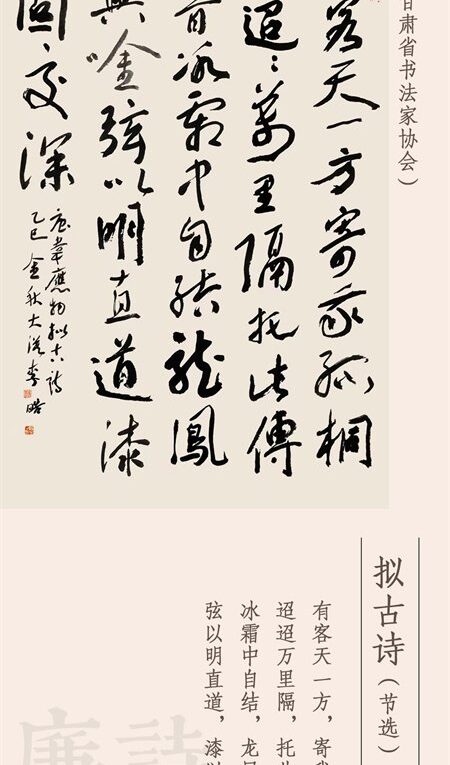 甘肃省书法家协会）
客天一方寄我孤桐
迢〻萬里隔托此傳
音冰霜中自結龍鳳
與吟弦以明直道漆
固交深
唐韋應物拟古詩
乙巳金秋大李皓
拟古诗（节选）
有客天一方，寄我
迢迢万里隔，托此
冰霜中自结，龙
弦以明直道，漆以
詩
廉